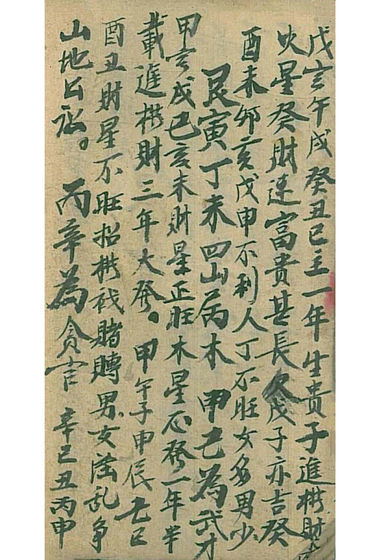 戊亥午戌癸丑巳主一年生贵子進横財
火星發財速富貴甚長久戌子亦吉癸
酉未卯亥戊申不利人丁不旺女多男少
艮寅丁未四山丙木 甲乙為武才
甲亥戌巳亥未財星正旺木星不發一年半
載進横財三年大發。甲午子申辰乙巳
酉丑財星不旺招横賭男女淫乱争
山地公訟。丙辛為贪吉 辛巳丑丙申